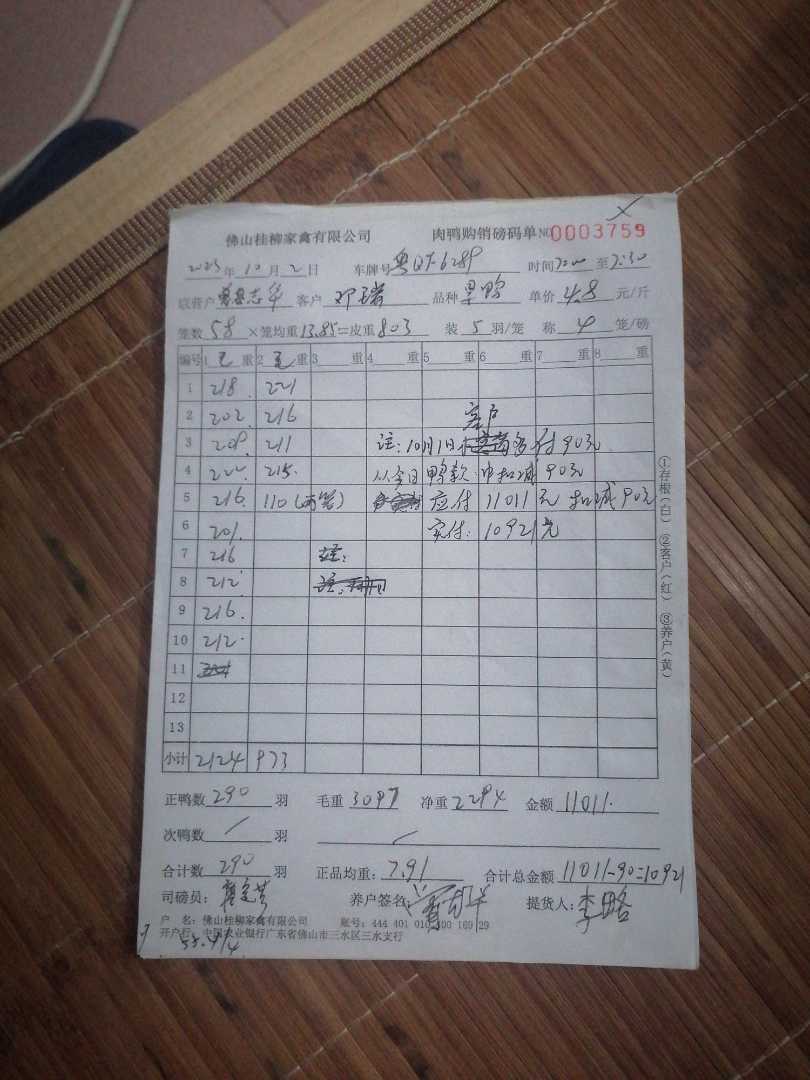 佛山桂柳家禽有限公司 肉鸭购销磅码单 NO 0003759
2023年10月2日 车牌号 粤 6289 时间 至2:30
联营户 志华 客户 邓 品种 单价 4.8 元/斤
笼数 58 ×笼均重 13.85=皮重 803 装 5 羽/笼 称 4 笼/磅
编号 1 毛 重 2 毛 重 3 重 4 重 5 重 6 重 7 重 8 重
1 218 221
2 202 216 客户
3 208 211 注:10月1日 多付90元
4 222 215 从今日鸭款中扣减90元
5 216 110(两笼) 应付11011元扣减90元
6 201 实付:10921元
7 216 注:
8 212
9 216
10 212
11
12
13
小计 2124 973
正鸭数 290 羽 毛重 3097 净重 2294 金额 11011
次鸭数 / 羽 /
合计数 290 羽 正品均重: 7.91 合计总金额 11011-90=10921
司磅员: 养户签名: 提货人: 李
户 名: 佛山桂柳家禽有限公司 账号: 444 401 010 400 169 29
开户行: 中国农业银行广东省佛山市三水区三水支行
①存根(白) ②客户(红) ③养户(黄)